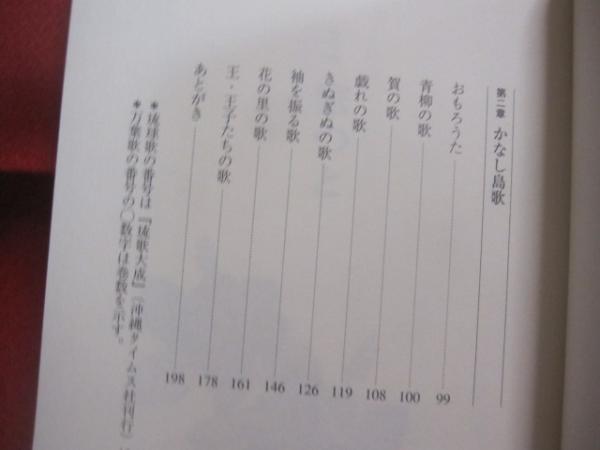 第二章 かなし島歌
おもろうた 99
青柳の歌 100
賀の歌 108
戯れの歌 119
きぬぎぬの歌 126
袖を振る歌 146
花の里の歌 161
王・王子たちの歌 178
あとがき 198
＊琉球歌の番号は『琉歌大成』（沖縄タイムス社刊行）
＊万葉歌の番号の〇数字は巻数を示す。